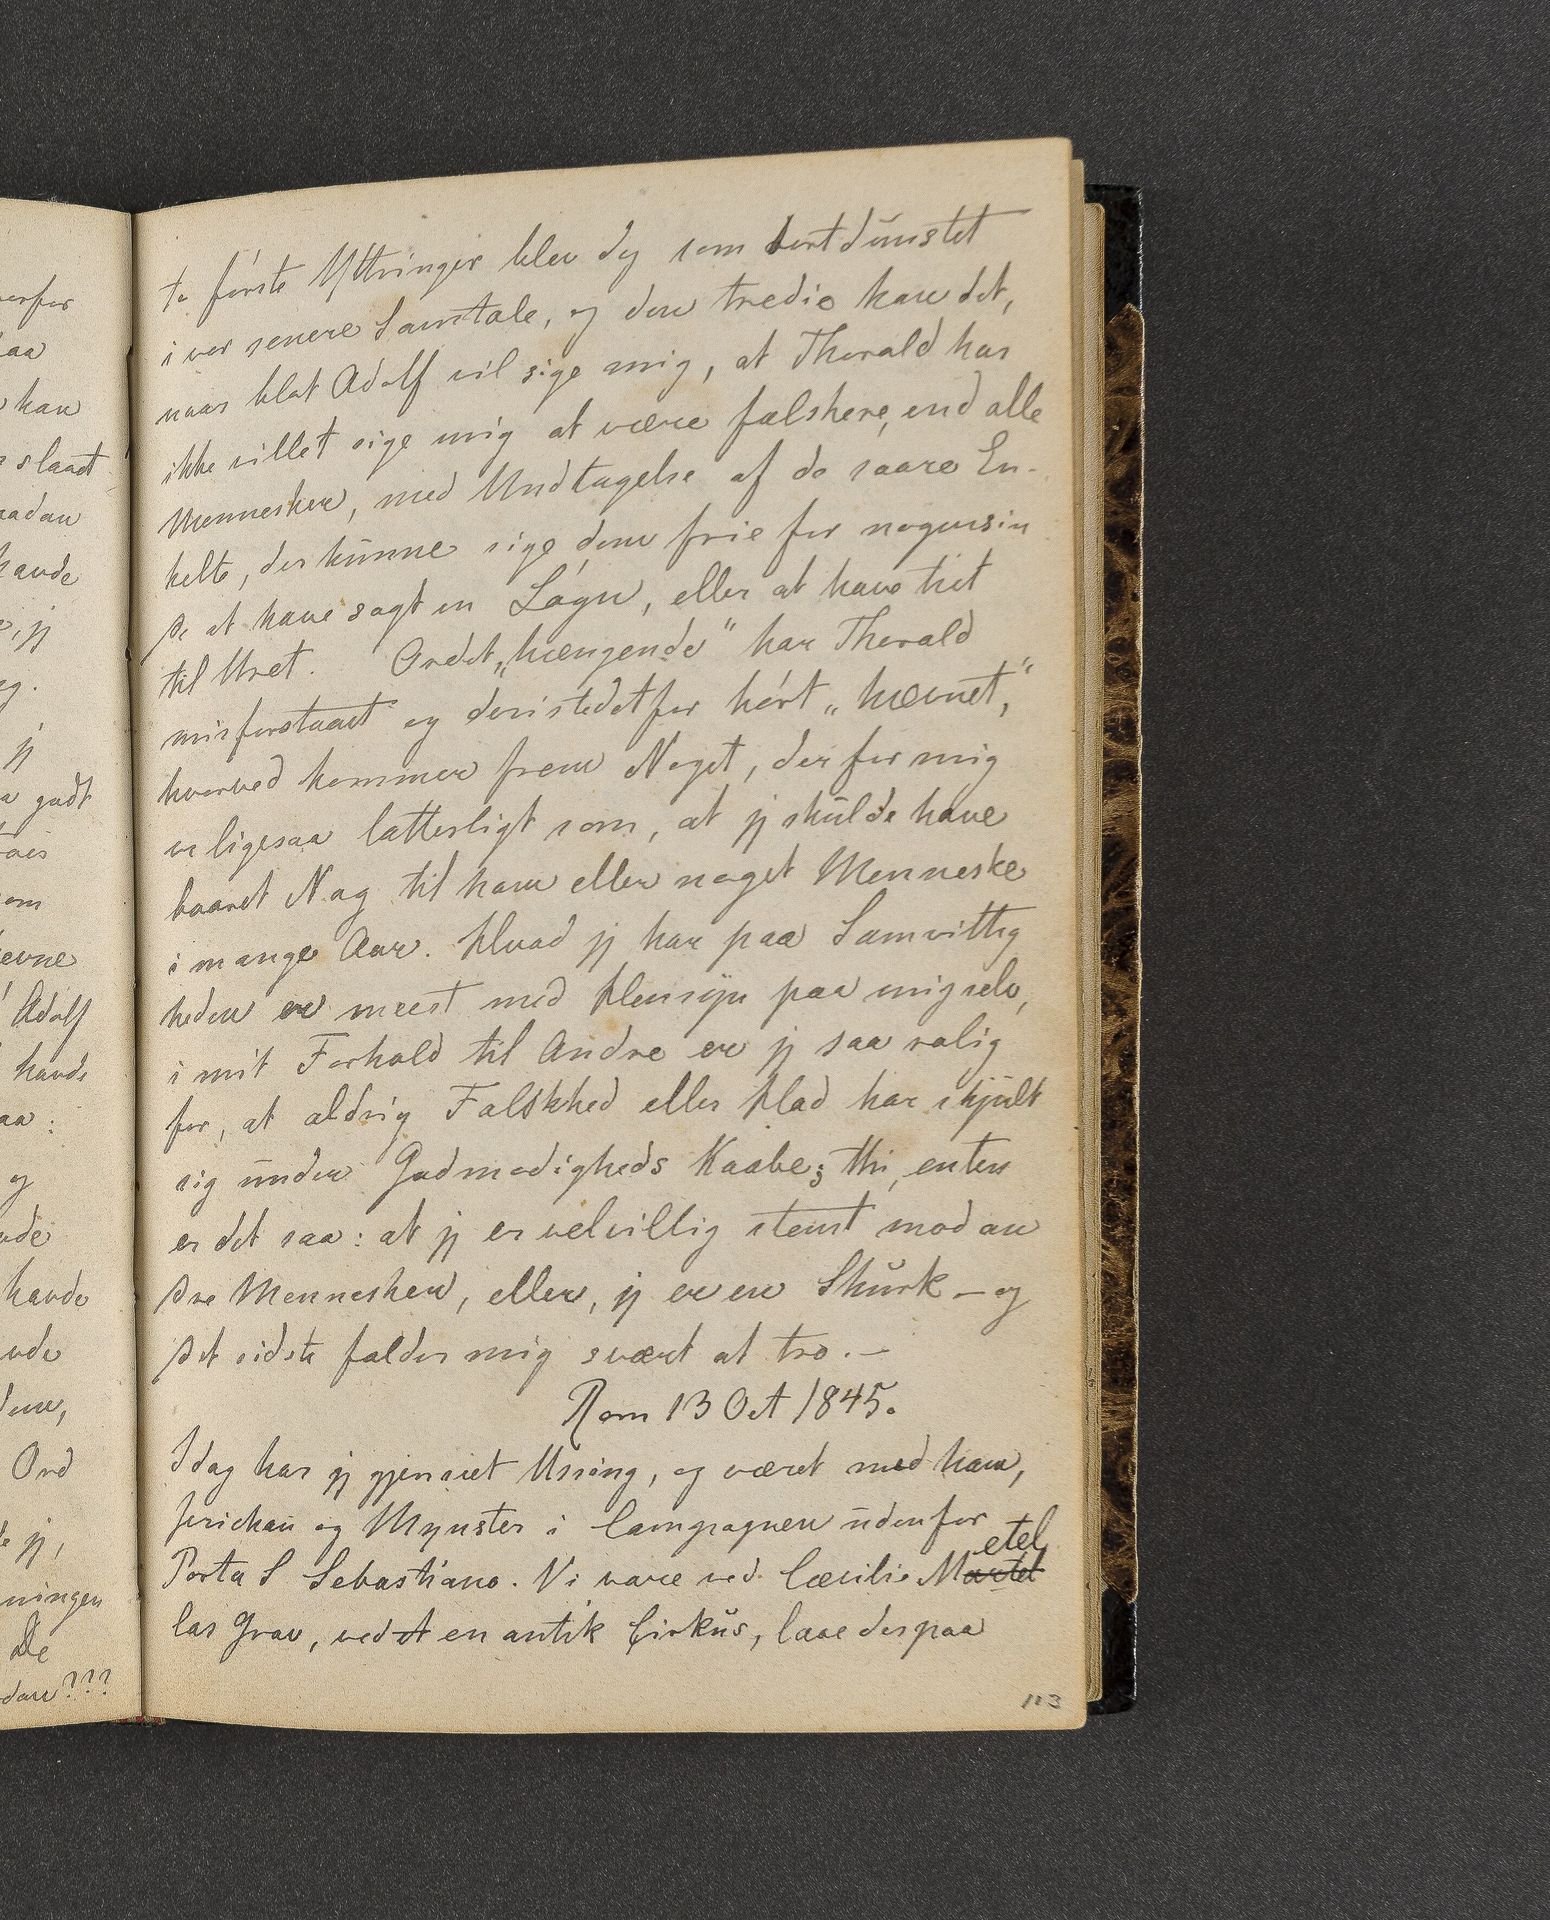 to første Yttringer blev dog som bortdunstet
i vor senere Samtale, og den tredie kan det,
naar blot Adolf vil sige mig, at Thorald har
ikke villet sige mig at være falskere, end alle
Mennesker, med Undtagelse af de saare En-
kelte, der kunne sige dem frie for nogensin
de at have sagt en Løgn, eller at have tiet
til Uret. Ordet „hængende" har Thorald
misforstaaet og deristedetfor hørt „hævnet,"
hvorved kommer frem Noget, der for mig
er ligesaa latterligt som, at jeg skulde have
baaret Nag til ham eller noget Menneske
i mange Aar. Hvad jeg har paa Samvittig
heden er meest med Hensyn paa mig selv,
i mit Forhold til Andre er jeg saa rolig
for, at aldrig Falskhed eller Had har skjult
sig under Godmodigheds Kaabe; thi, enten
er det saa: at jeg er velvillig stemt mod an
dre Mennesker, eller, jeg er en Skurk – og
det sidste falder mig svært at tro. –
Rom 13 Oct 1845.
Idag har jeg gjenseet Ussing, og været med ham,
Jerichau og Mynster i Campagnen udenfor
etel
Porta S Sebastiano. Vi vare ved Cæcilie Martel
las Grav, vedt en antik Cirkus, laae der paa
113
verfor
aa
kan
slaaet
aadan
havde
, jeg
eg.
jeg
godt
om
evne
Adolf
havde
aa:
og
havde
dem,
Ord
jeg,
ningen
De
dan???